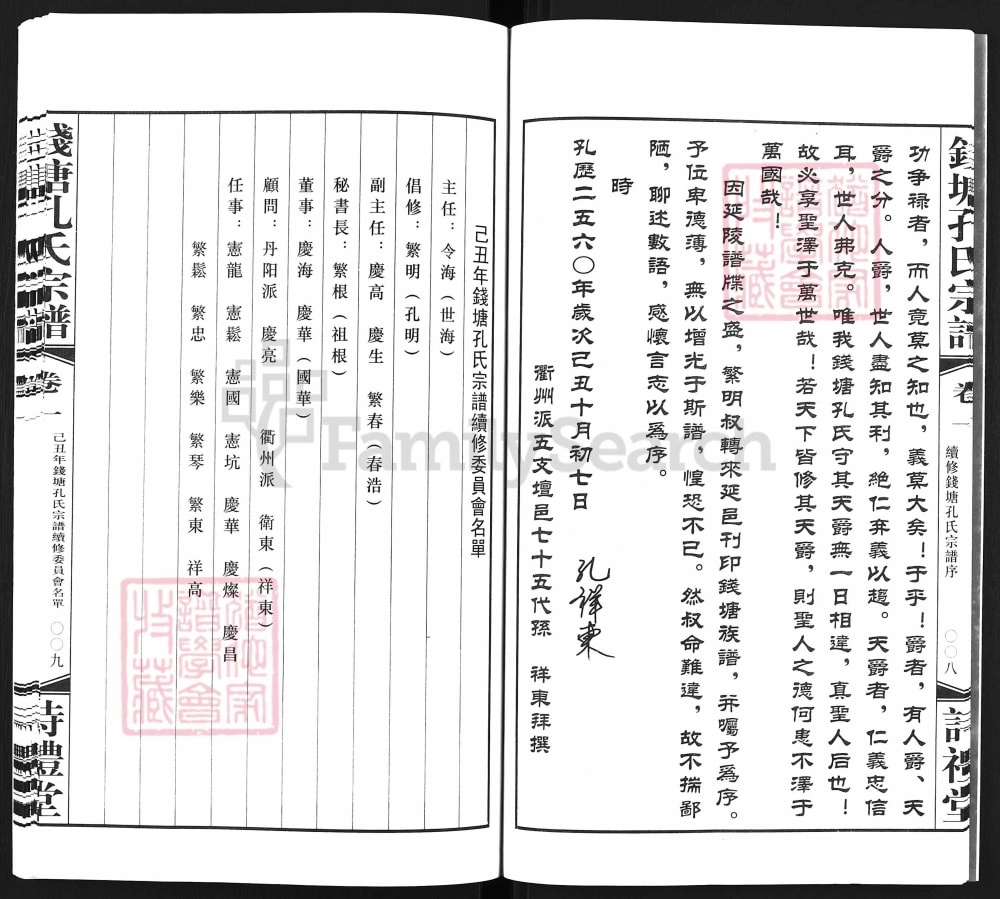 錢塘孔氏宗譜
卷一
續修錢塘孔氏宗譜序
〇〇八
詩禮堂
功争禄者，而人竟莫之知也，義莫大矣！于乎！爵者，有人爵、天
爵之分。人爵，世人盡知其利，絶仁弃義以趨。天爵者，仁義忠信
耳，世人弗克。唯我錢塘孔氏守其天爵無一日相違，真聖人后也！
故必享聖澤于萬世哉！若天下皆修其天爵，則聖人之德何患不澤于
萬國哉！
因延陵譜牒之盛，繁明叔轉來延邑刊印錢塘族譜，并囑予爲序。
予位卑德薄，無以增光于斯譜，惶恐不已。然叔命難違，故不揣鄙
陋，聊述數語，感懷言志以爲序。
時
孔歷二五六〇年歲次己丑十月初七日
孔祥東
衢州派五支壇邑七十五代孫 祥東拜撰
己丑年錢塘孔氏宗譜續修委員會名單
主任：令海（世海）
倡修：繁明（孔明）
副主任：慶高 慶生 繁春（春浩）
秘書長：繁根（祖根）
董事：慶海 慶華（國華）
顧問：丹阳派 慶亮 衢州派 衛東（祥東）
任事：憲龍 憲鬆 憲國 憲坑 慶華 慶燦 慶昌
繁鬆 繁忠 繁樂 繁琴 繁東 祥高
錢塘孔氏宗譜
卷一
己丑年錢塘孔氏宗譜續修委員會名單
〇〇九
詩禮堂
FamilySearch